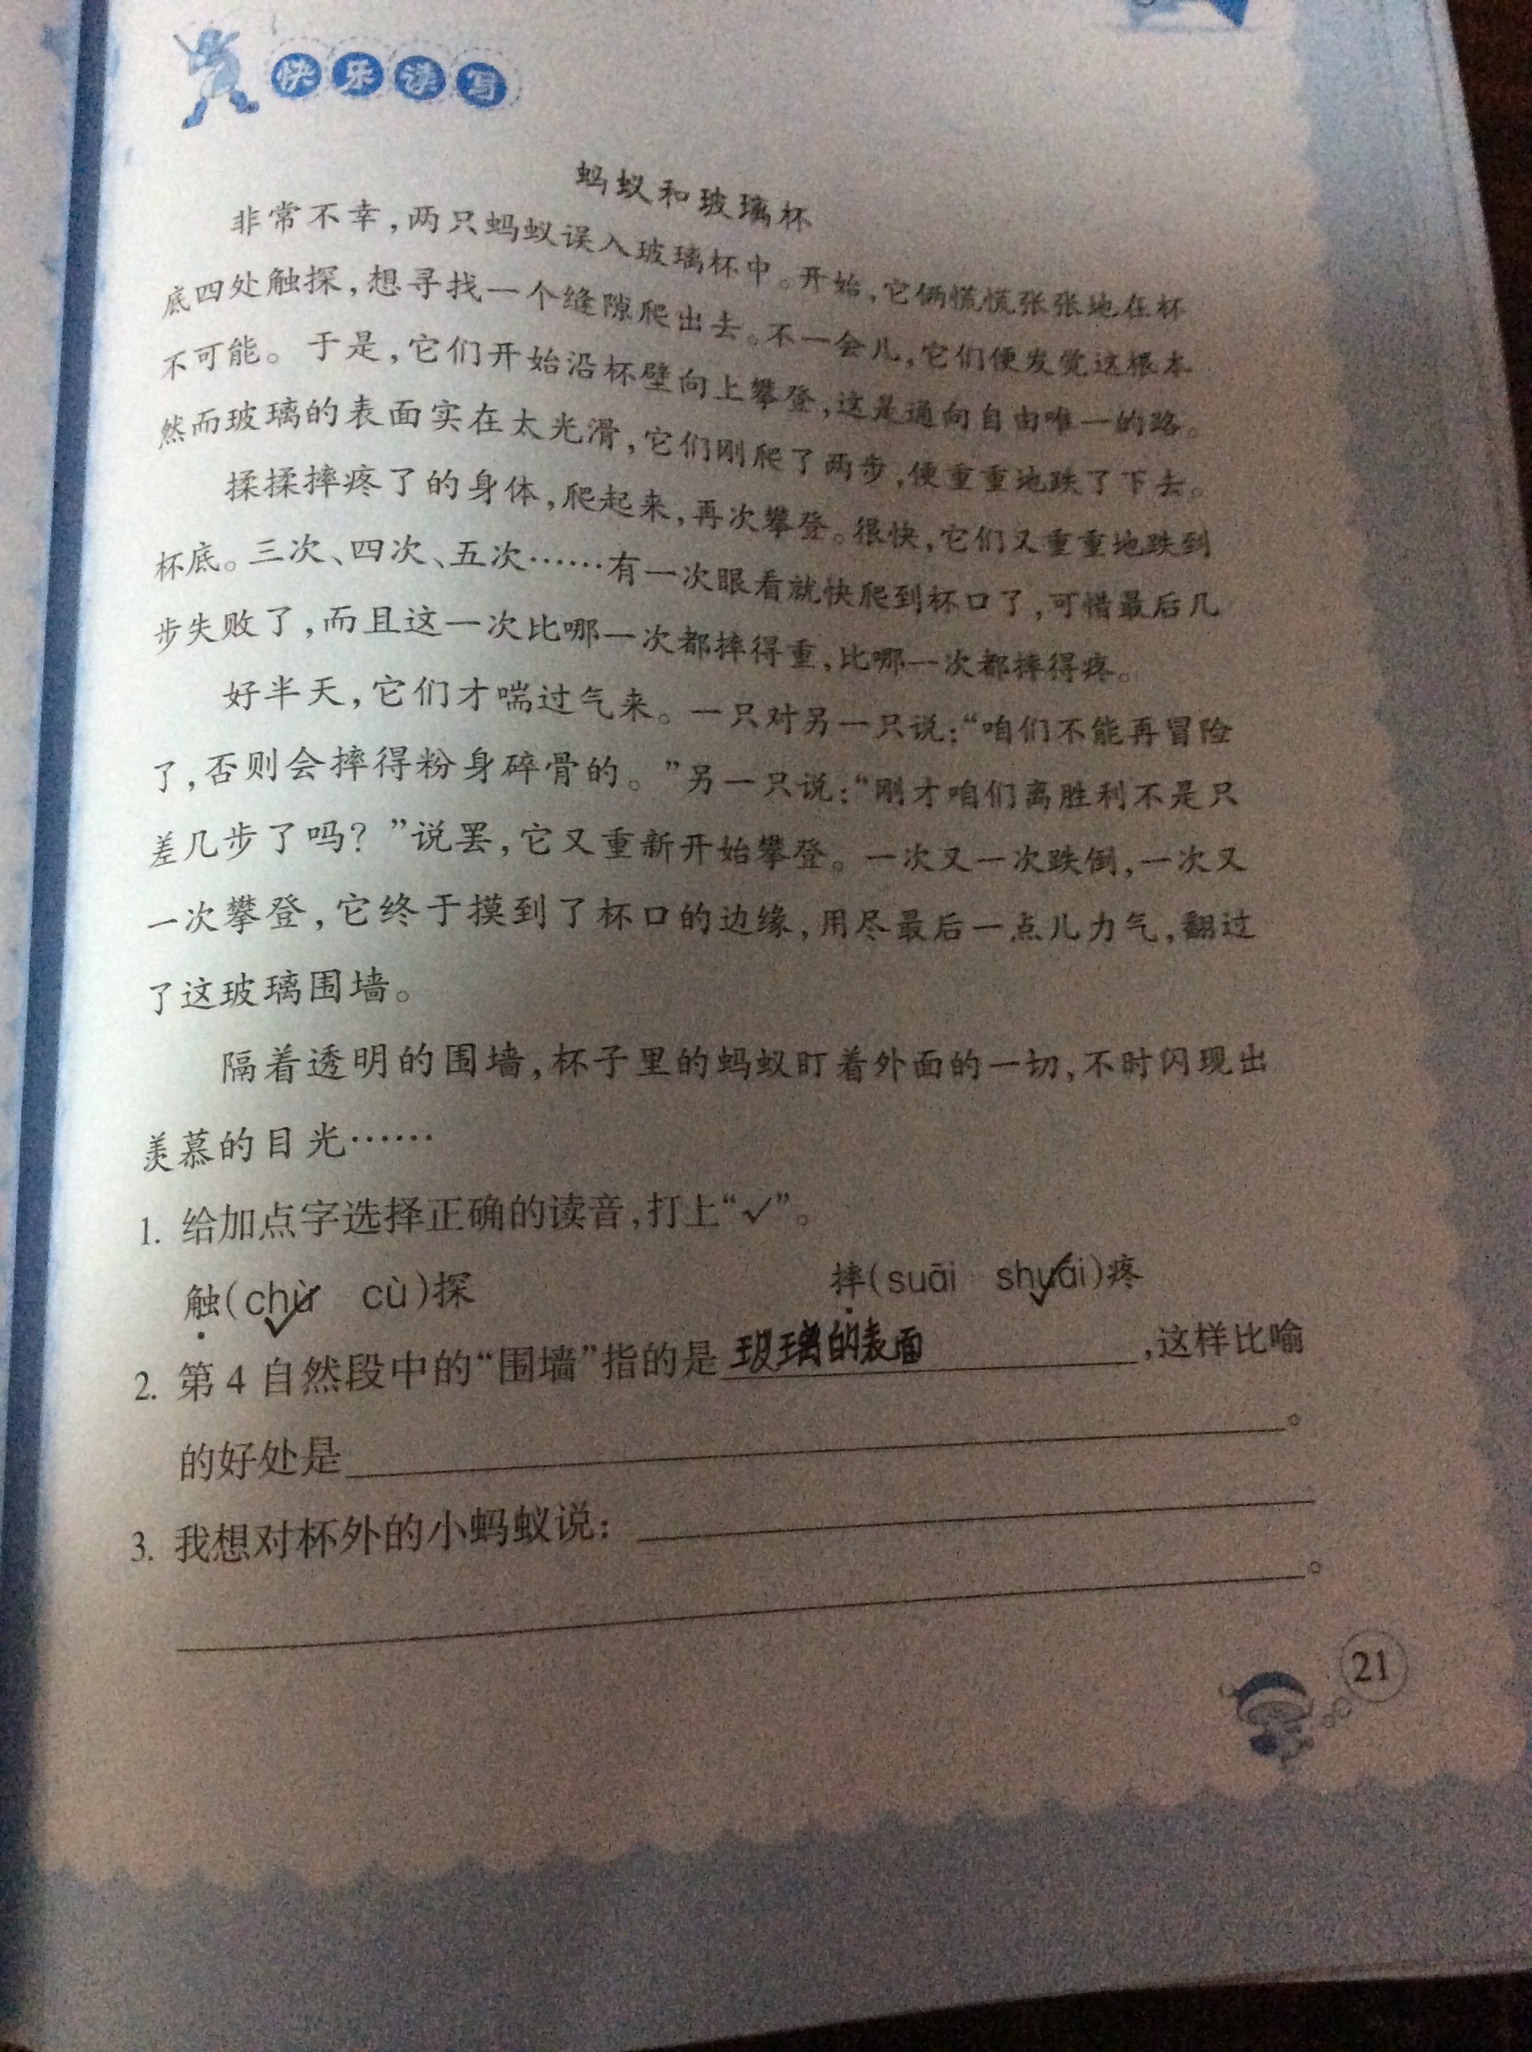 快乐读写
蚂蚁和玻璃杯
非常不幸，两只蚂蚁误入玻璃杯中。开始，它俩慌慌张张地在杯
底四处触探，想寻找一个缝隙爬出去。不一会儿，它们便发觉这根本
不可能。于是，它们开始沿杯壁向上攀登，这是通向自由唯一的路。
然而玻璃的表面实在太光滑，它们刚爬了两步，便重重地跌了下去。
揉揉摔疼了的身体，爬起来，再次攀登。很快，它们又重重地跌到
杯底。三次、四次、五次……有一次眼看就快爬到杯口了，可惜最后几
步失败了，而且这一次比哪一次都摔得重，比哪一次都摔得疼。
好半天，它们才喘过气来。一只对另一只说：“咱们不能再冒险
了，否则会摔得粉身碎骨的。”另一只说：“刚才咱们离胜利不是只
差几步了吗？”说罢，它又重新开始攀登。一次又一次跌倒，一次又
一次攀登，它终于摸到了杯口的边缘，用尽最后一点儿力气，翻过
了这玻璃围墙。
隔着透明的围墙，杯子里的蚂蚁盯着外面的一切，不时闪现出
羡慕的目光……
1. 给加点字选择正确的读音，打上“✓”。
触(chù✓ cù)探 摔(suāi shuāi✓)疼
2. 第4自然段中的“围墙”指的是玻璃的表面，这样比喻
的好处是。
3. 我想对杯外的小蚂蚁说：
。
21